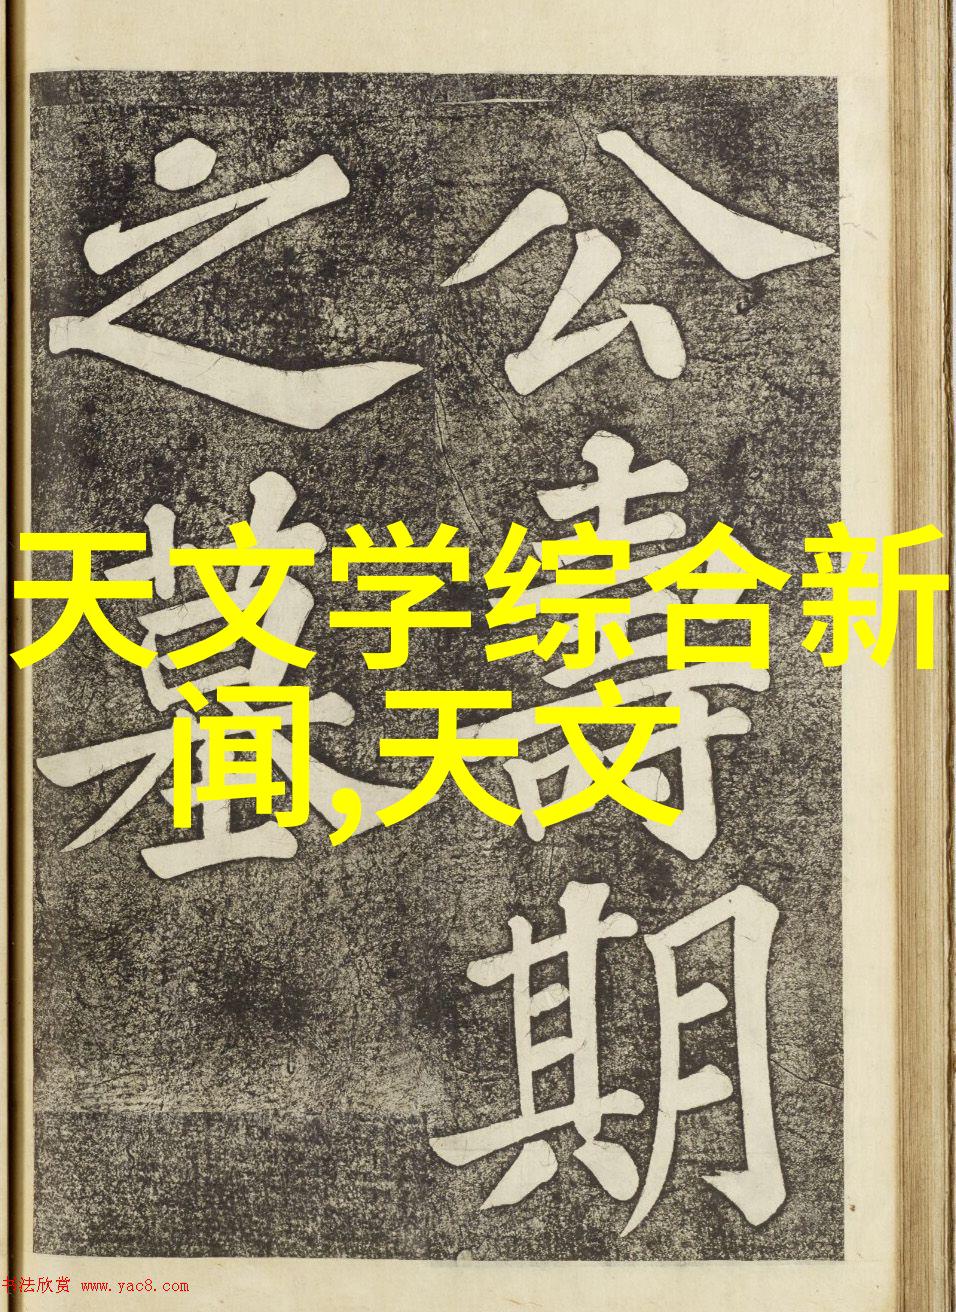 公壽期
之墓
天文学综合新
闻,天文
书法欣赏 www.yac8.com